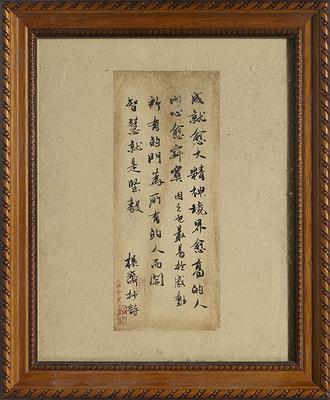 成就愈大精神境界愈高的人
內心愈寂寞因之也最易於感動
所有的門為所有的人而闢
智慧就是堅毅
極齋抄詩